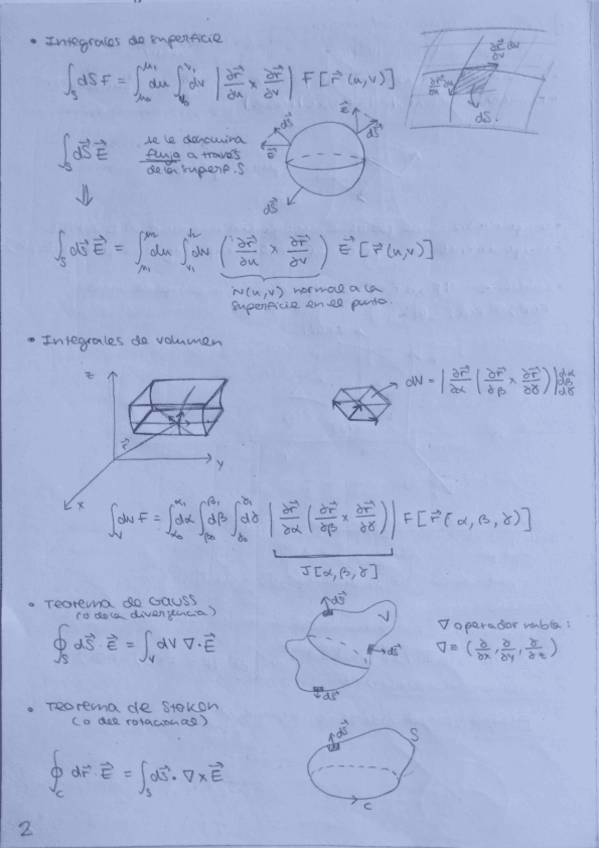 • Integrales de superficie
∫_S dS F = ∫_{u₀}^{u₁} du ∫_{v₀}^{v₁} dv |∂r⃗/∂u × ∂r⃗/∂v| F[r⃗(u,v)]
∂r⃗/∂v dv
∂r⃗/∂u du
dS
∫_S dS⃗ E⃗
se le denomina
flujo a través
de la superf. S
E⃗ dS⃗
E⃗ dS⃗
dS⃗
⇓
∫_S dS⃗ E⃗ = ∫_{u₁}^{u₂} du ∫_{v₁}^{v₂} dv (∂r⃗/∂u × ∂r⃗/∂v) E⃗[r⃗(u,v)]
N(u,v) normal a la
superficie en el punto.
• Integrales de volumen
z
r⃗
y
x
dV = |∂r⃗/∂α (∂r⃗/∂β × ∂r⃗/∂γ)| dα dβ dγ
∫_V dV F = ∫_{α₀}^{α₁} dα ∫_{β₀}^{β₁} dβ ∫_{γ₀}^{γ₁} dγ |∂r⃗/∂α (∂r⃗/∂β × ∂r⃗/∂γ)| F[r⃗(α,β,γ)]
J[α,β,γ]
• Teorema de Gauss
(o de la divergencia)
∮_S dS⃗ · E⃗ = ∫_V dV ∇·E⃗
dS⃗
V
dS⃗
dS⃗
∇ operador nabla:
∇ ≡ (∂/∂x, ∂/∂y, ∂/∂z)
• Teorema de Stokes
(o del rotacional)
∮_C dr⃗ · E⃗ = ∫_S dS⃗ · ∇×E⃗
dS⃗
S
C
2